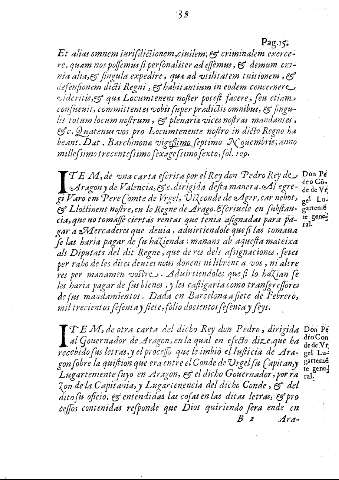 38
Pag. 15.
Et alias omnem iurisdictionem, ciuilem, & criminalem exercere, quam nos possemus si personaliter adessemus, & demum omnia alia, & singula expedire, que ad vtilitatem tuitionem, &
defensionem dicti Regni, & habitantium in eodem concernere
videritis, & que Locumtenens noster potest facere, seu etiam,
consueuit, committentes vobis super predictis omnibus, & singulis totum locum nostrum, & plenaria vices nostras mandantes,
&c. Quatenus vos pro Locumtenente nostro in dicto Regno habeant. Dat. Barchinona vigessimo septimo Nouembris, anno
millessimo trecentesimo sexagesimo sexto, fol. 129.
ITEM, de vna carta escrita por el Rey don Pedro Rey de
Aragon y de Valencia, &c. dirigida desta manera. Al egregi Varo em Pere Comte de Vrgel, Vizconde de Ager, car nebot,
& Llochtinent nostre, en lo Regne de Arago. Escriuele en substancia, que no tomasse ciertas rentas que tenia asignadas para pagar a Mercaderes que deuia, aduirtiendole que si las tomaua
se las haria pagar de su hazienda: manans ab aquesta mateixa
als Diputats del dit Regne, que de res dels asignacions, fetes
per rabo de les dites deutes nous donem ni liberen a vos, ni altre
res per manament vostre. Aduirtiendoles que si lo hazian se
los haria pagar de sus bienes, y les castigaria como transgressores
de sus mandamientos. Dada en Barcelona a siete de Febrero,
mil trecientos sesenta y siete, folio docientos sesenta y seys.
Don Pedro Conde de Vrgel Lugarteniente general.
ITEM, de otra carta del dicho Rey don Pedro, dirigida
al Gouernador de Aragon, en la qual en efecto dize, que ha
recebido sus letras, y el processo que le imbió el Iusticia de Aragon sobre la question que era entre el Conde de Vrgel su Capitan, y
Lugarteniente suyo en Aragon, & el dicho Gouernador, por razon de la Capitania, y Lugartenencia del dicho Conde, & del
dito su oficio, & entendidas las cosas en las ditas letras, & processos contenidas responde que Dios quiriendo sera ende en
Don Pedro Conde de Vrgel Lugarteniente general.
B 2
Ara-